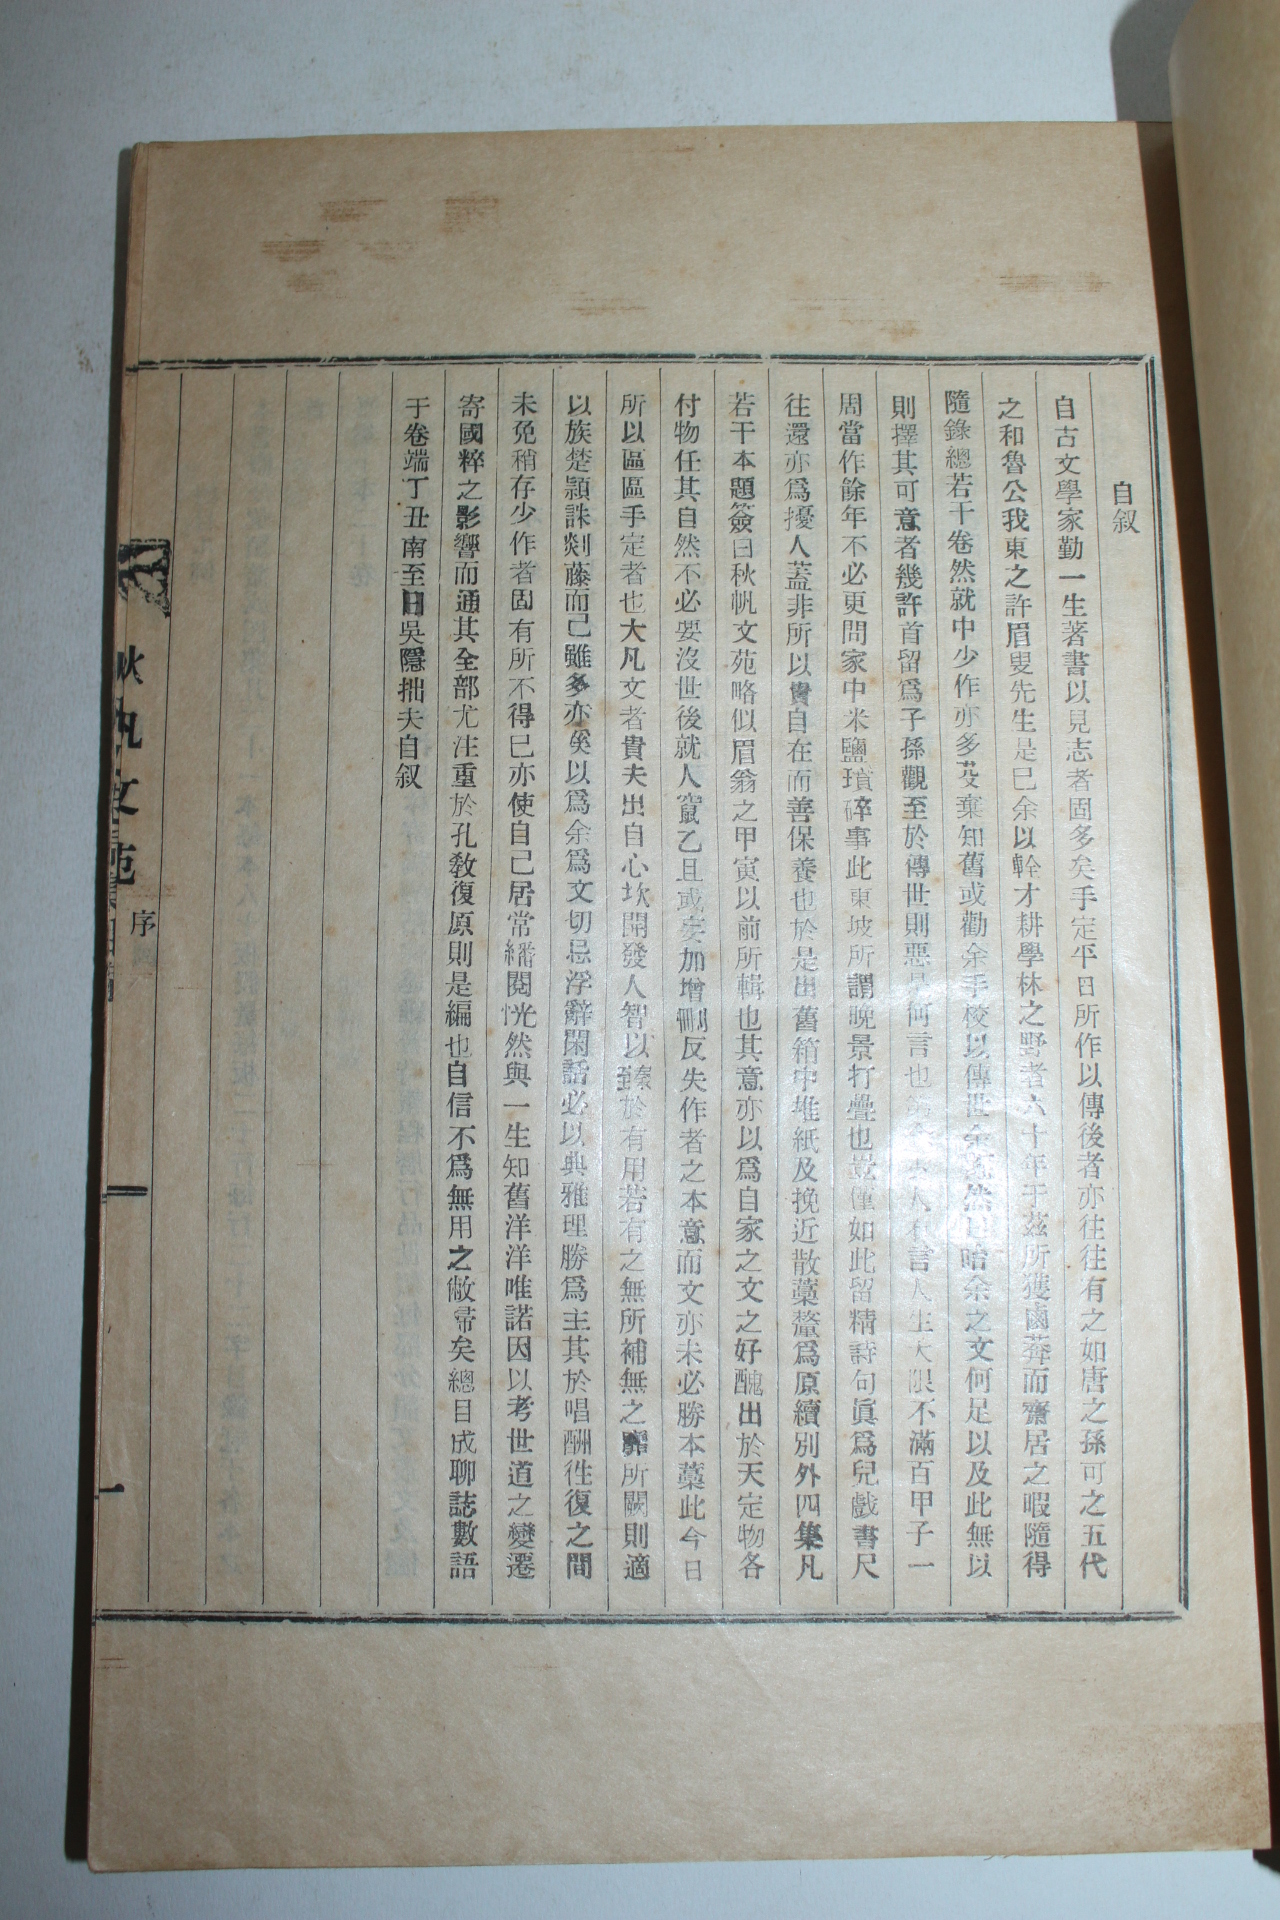 自叙
自古文學家勤一生著書以見志者固多矣手定平日所作以傳後者亦往往有之如唐之孫可之五代
之和魯公我東之許眉叟先生是已余以輇才耕學林之野者六十年于茲所獲鹵莽而齋居之暇隨得
隨錄總若干卷然就中少作亦多芟棄知舊或勸余手校以傳世余 余之文何足以及此無以
則擇其可意者幾許首留爲子孫觀至於傳世則惡是何言也 人有言人生大限不滿百甲子一
周當作餘年不必更問家中米鹽瑣碎事此東坡所謂晚景打疊也豈僅如此留精詩句眞爲兒戲書尺
往還亦爲擾人蓋非所以貴自在而善保養也於是出舊箱中堆紙及挽近散藁釐爲原續別外四集凡
若干本題簽曰秋帆文苑略似眉翁之甲寅以前所輯也其意亦以爲自家之文之好醜出於天定物各
付物任其自然不必要沒世後就人竄乙且或妄加增刪反失作者之本意而文亦未必勝本藁此今日
所以區區手定者也大凡文者貴夫出自心坎開發人智以臻於有用若有之無所補無之靡所闕則適
以族楚潁誅剡藤而已雖多亦奚以爲余爲文切忌浮辭閑話必以典雅理勝爲主其於唱酬徃復之間
未免稍存少作者固有所不得已亦使自己居常繙閱恍然與一生知舊洋洋唯諾因以考世道之變遷
寄國粹之影響而通其全部尤注重於孔敎復原則是編也自信不爲無用之敝帚矣總目成聊誌數語
于卷端丁丑南至日吳隱拙夫自叙
秋帆文苑
序
一